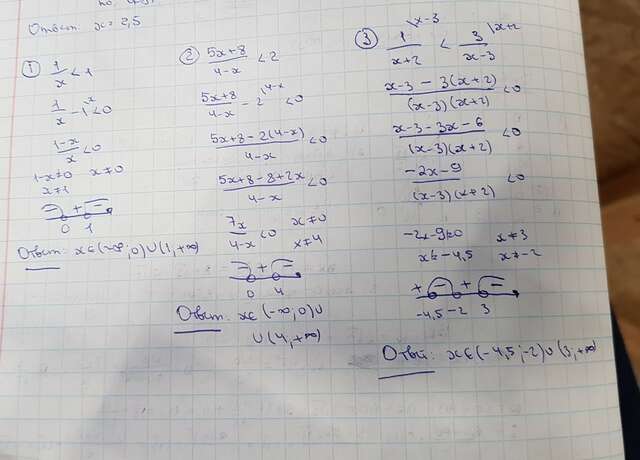 Ответ: x = 2,5
① 1/x < 1
1/x - 1 \x < 0
1-x/x < 0
1-x≠0 x≠0
x≠1
- + -
0 1
Ответ: x∈(-∞;0)∪(1,+∞)
② 5x+8/4-x < 2
5x+8/4-x - 2 \4-x < 0
5x+8-2(4-x)/4-x < 0
5x+8-8+2x/4-x < 0
7x/4-x < 0 x≠0
x≠4
- + -
0 4
Ответ: x∈(-∞,0)∪
∪(4,+∞)
③ 1/x+2 \x-3 < 3/x-3 \x+2
x-3-3(x+2)/(x-3)(x+2) < 0
x-3-3x-6/(x-3)(x+2) < 0
-2x-9/(x-3)(x+2) < 0
-2x-9≠0 x≠3
x≠-4,5 x≠-2
+ - + -
-4,5 -2 3
Ответ: x∈(-4,5;-2)∪(3,+∞)